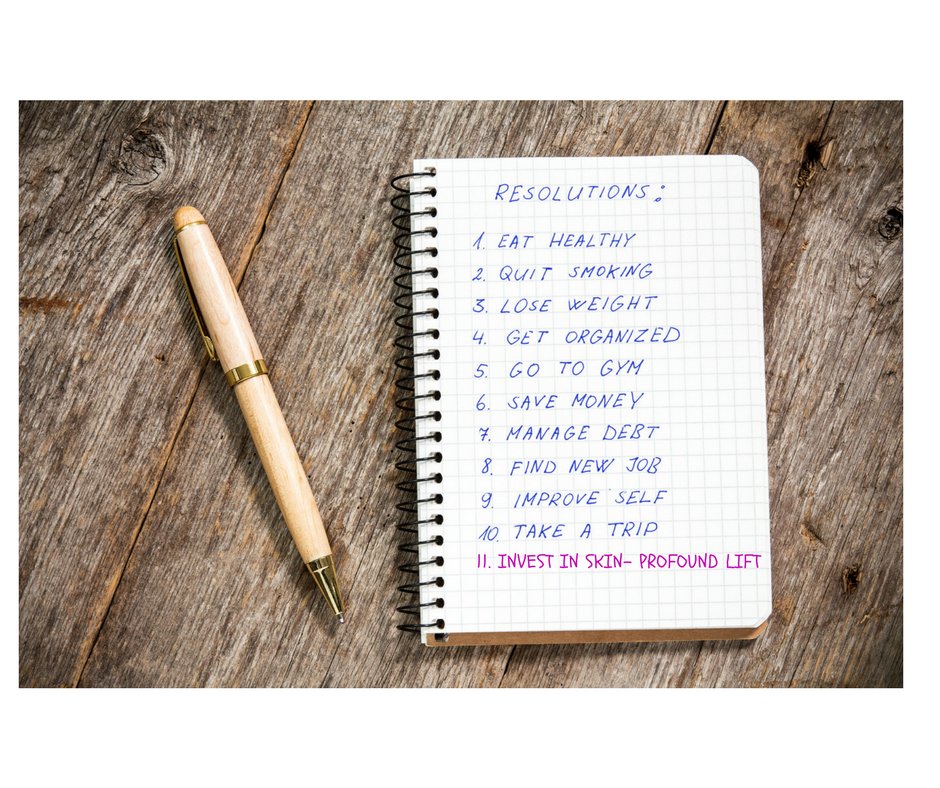 RESOLUTIONS:
1. EAT HEALTHY
2. QUIT SMOKING
3. LOSE WEIGHT
4. GET ORGANIZED
5. GO TO GYM
6. SAVE MONEY
7. MANAGE DEBT
8. FIND NEW JOB
9. IMPROVE SELF
10. TAKE A TRIP
11. INVEST IN SKIN- PROFOUND LIFT